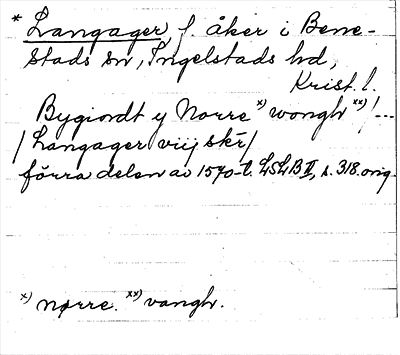 * Langager, f. åker i Bene-
stads sn, Ingelstads hd,
Krist. l.
Bygiordt y Norre x) wongh xx)/---
/Langager viij skr/
förra delen av 1570-t. LSLB II, s. 318. orig.
x) nørre. xx) vangh.